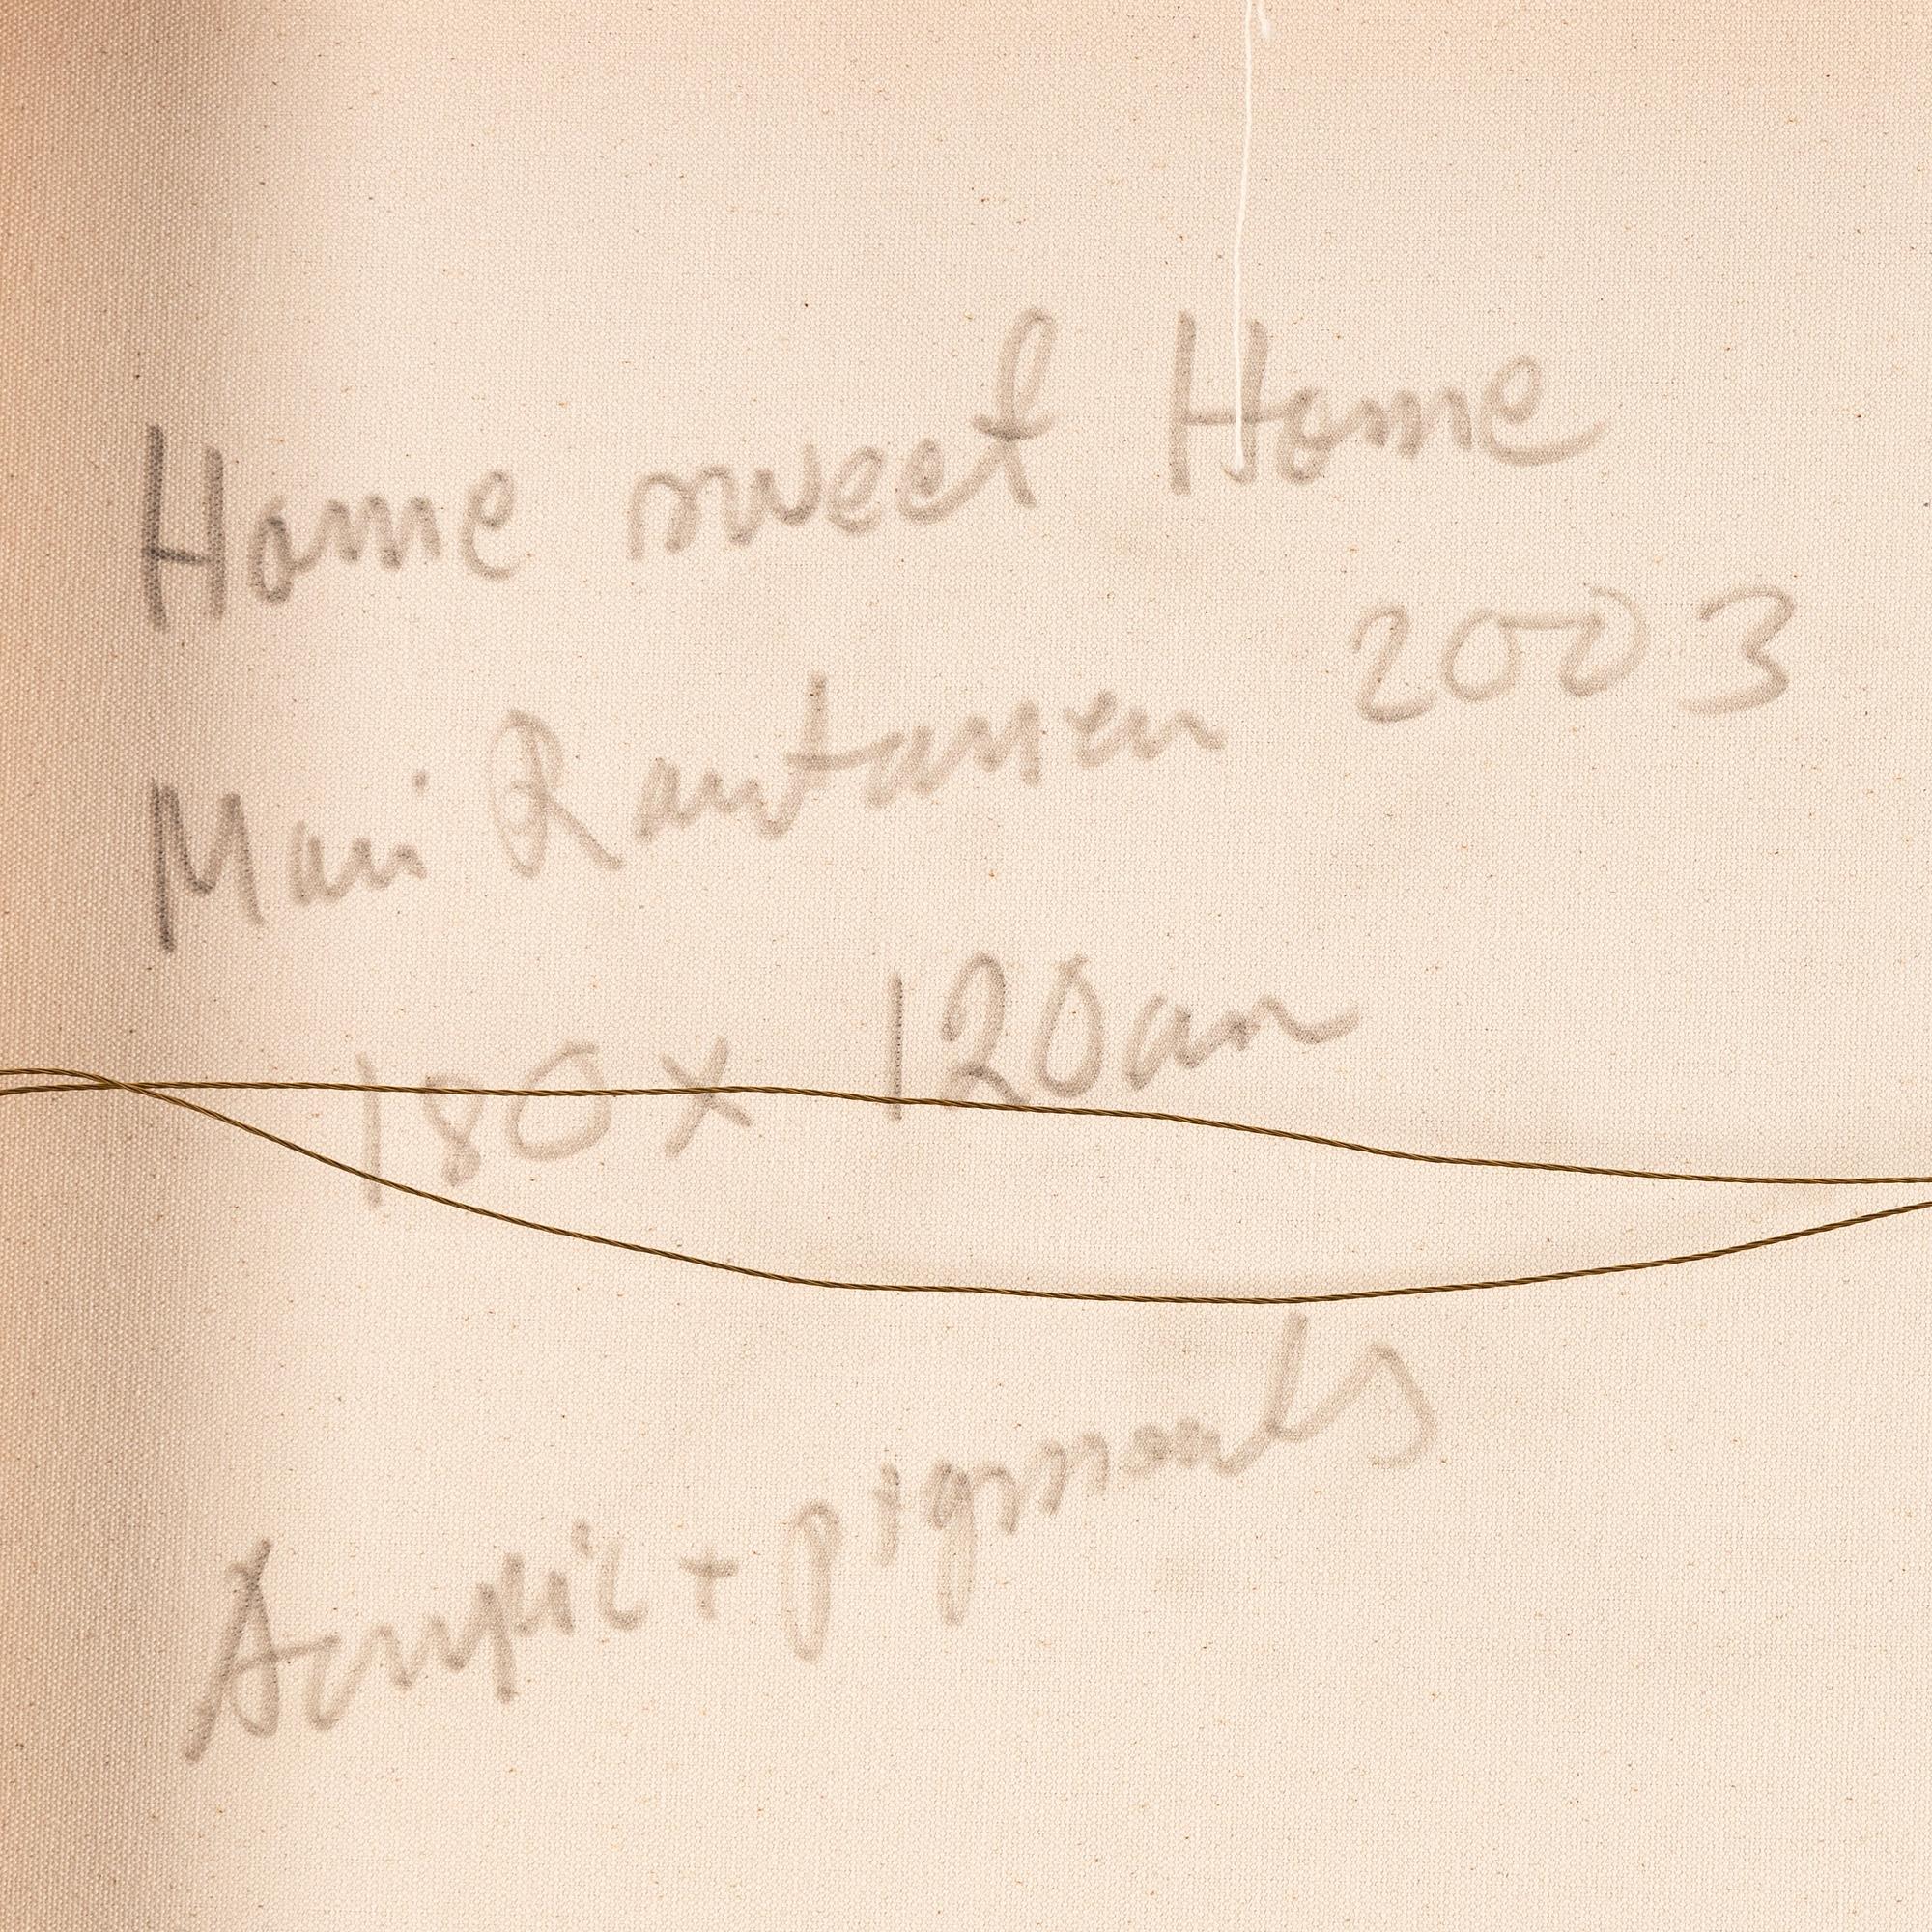 Home sweet Home
Mari Rantanen 2003
180 x 120 cm
Acrylic + pigments